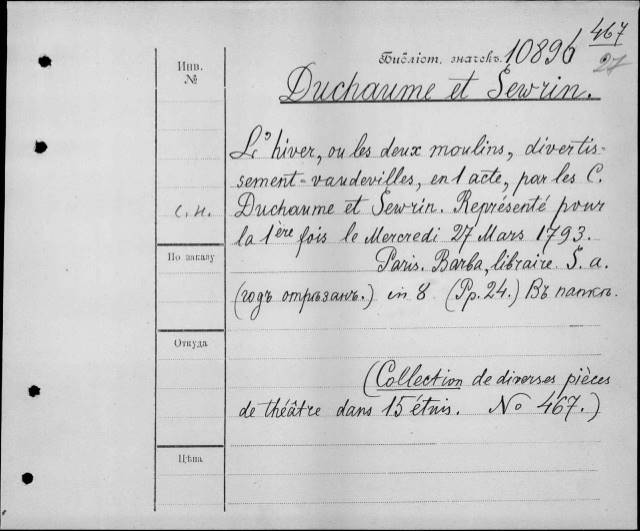 467
27
Библіот. значекъ 10896
Инв.
№
Duchaume et Sewrin.
L'hiver, ou les deux moulins, divertis-
sement-vaudevilles, en 1 acte, par les C.
с. н.
Duchaume et Sewrin. Représenté pour
la 1ère fois le Mercredi 27 Mars 1793.
По заказу
Paris. Barba, libraire. S. a.
(годъ отрѣзанъ.) in 8 (Pp. 24.) Въ папкѣ.
Откуда
(Collection de diverses pièces
de théâtre dans 15 étuis. No 467.)
Цѣна